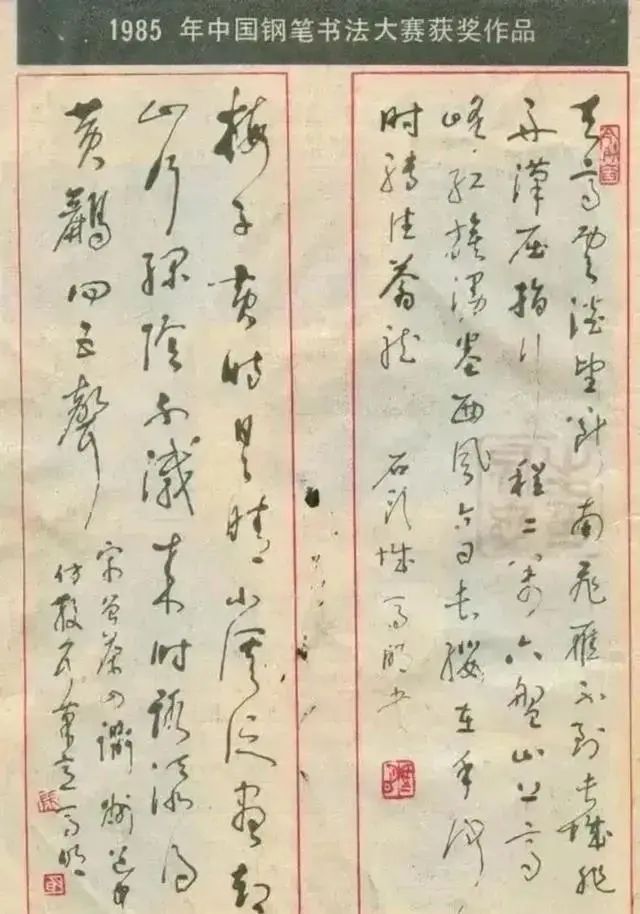 1985 年中国钢笔书法大赛获奖作品
天高云淡望断南飞雁不到长城非
好汉屈指行程二万六盘山上高
峰红旗漫卷西风今日长缨在手何
时缚住苍龙 石头城 书
梅子黄时日日晴小溪泛尽却
山行绿阴不减来时路添得
黄鹂四五声
宋曾茶山 衢州道中